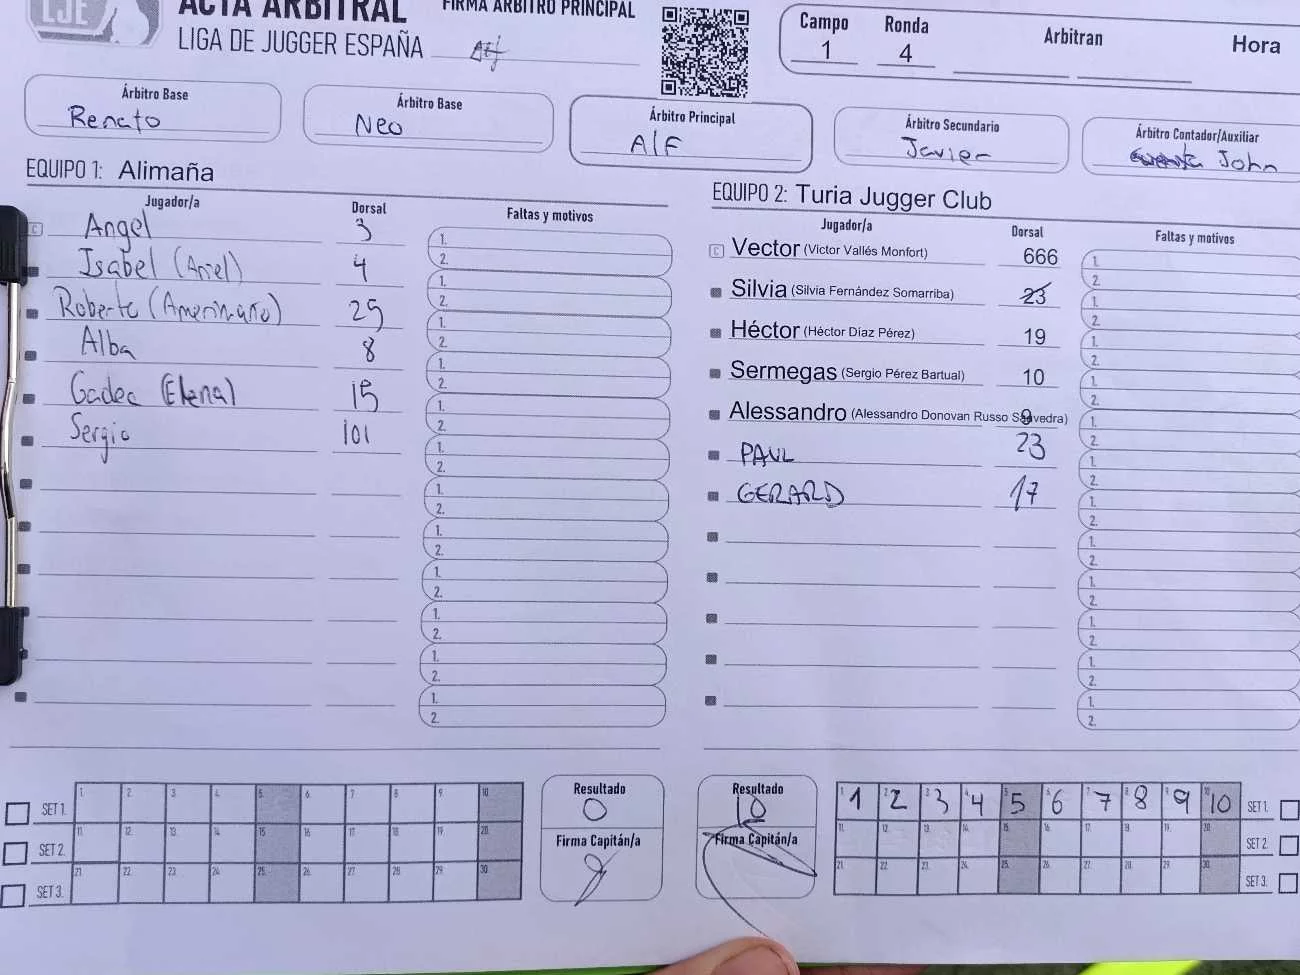 LJE
ACTA ARBITRAL
LIGA DE JUGGER ESPAÑA
FIRMA ÁRBITRO PRINCIPAL
Campo Ronda Arbitran Hora
1 4
Árbitro Base
Renato
Árbitro Base
Neo
Árbitro Principal
Alf
Árbitro Secundario
Javier
Árbitro Contador/Auxiliar
John
EQUIPO 1: Alimaña
Jugador/a Dorsal Faltas y motivos
C Angel 3 1.
2.
Isabel (Ariel) 4 1.
2.
Roberto (Americano) 25 1.
2.
Alba 8 1.
2.
Gadea (Elena) 15 1.
2.
Sergio 101 1.
2.
1.
2.
1.
2.
1.
2.
1.
2.
1.
2.
1.
2.
EQUIPO 2: Turia Jugger Club
Jugador/a Dorsal Faltas y motivos
C Vector (Victor Vallés Monfort) 666 1.
2.
Silvia (Silvia Fernández Somarriba) 23 1.
2.
Héctor (Héctor Díaz Pérez) 19 1.
2.
Sermegas (Sergio Pérez Bartual) 10 1.
2.
Alessandro (Alessandro Donovan Russo Saavedra) 9 1.
2.
PAUL 23 1.
2.
GERARD 17 1.
2.
1.
2.
1.
2.
1.
2.
1.
2.
1.
2.
SET 1. 1. 2. 3. 4. 5. 6. 7. 8. 9. 10.
SET 2. 11. 12. 13. 14. 15. 16. 17. 18. 19. 20.
SET 3. 21. 22. 23. 24. 25. 26. 27. 28. 29. 30.
Resultado
0
Firma Capitán/a
Resultado
10
Firma Capitán/a
1 2 3 4 5 6 7 8 9 10 SET 1.
11. 12. 13. 14. 15. 16. 17. 18. 19. 20. SET 2.
21. 22. 23. 24. 25. 26. 27. 28. 29. 30. SET 3.